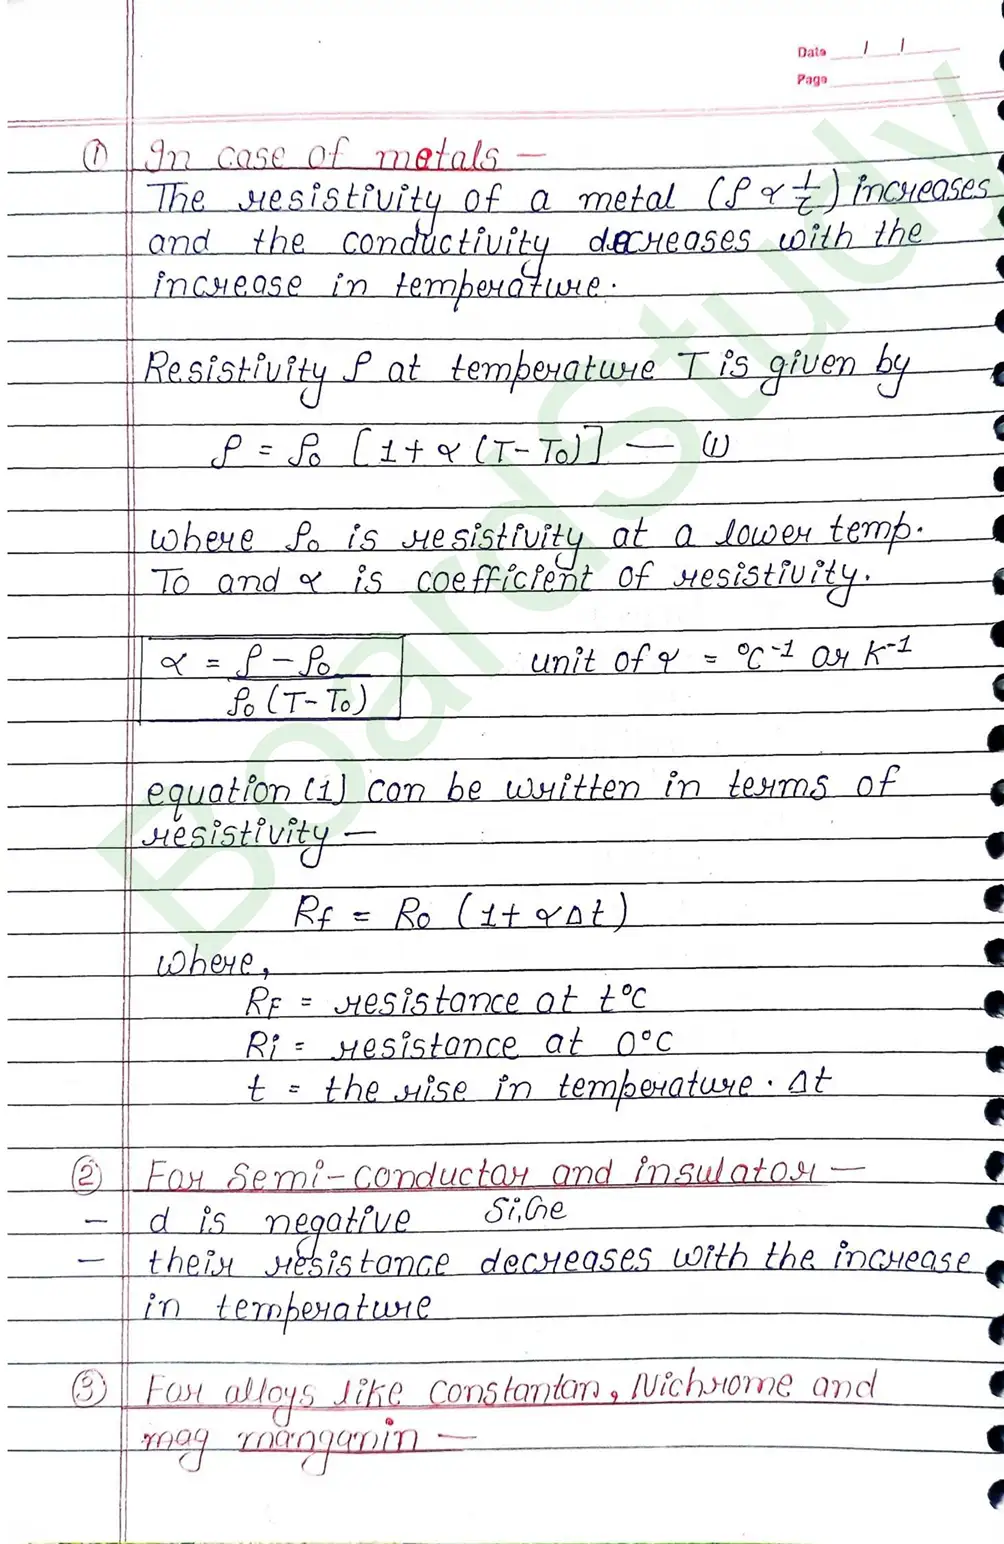 Date / /
Page
① In case of metals —
The resistivity of a metal (ρ ∝ 1/τ) increases
and the conductivity decreases with the
increase in temperature.
Resistivity ρ at temperature T is given by
ρ = ρ₀ [1 + α (T - T₀)] — (1)
where ρ₀ is resistivity at a lower temp.
To and α is coefficient of resistivity.
α = ρ - ρ₀ / ρ₀ (T - T₀) unit of α = °C⁻¹ or K⁻¹
equation (1) can be written in terms of
resistivity —
Rf = R₀ (1 + αΔt)
where,
RF = resistance at t°C
Ri = resistance at 0°C
t = the rise in temperature. Δt
② For semi-conductor and insulator —
- d is negative Si,Ge
- their resistance decreases with the increase
in temperature
③ For alloys like constantan, Nichrome and
mag manganin —
BoardStudy